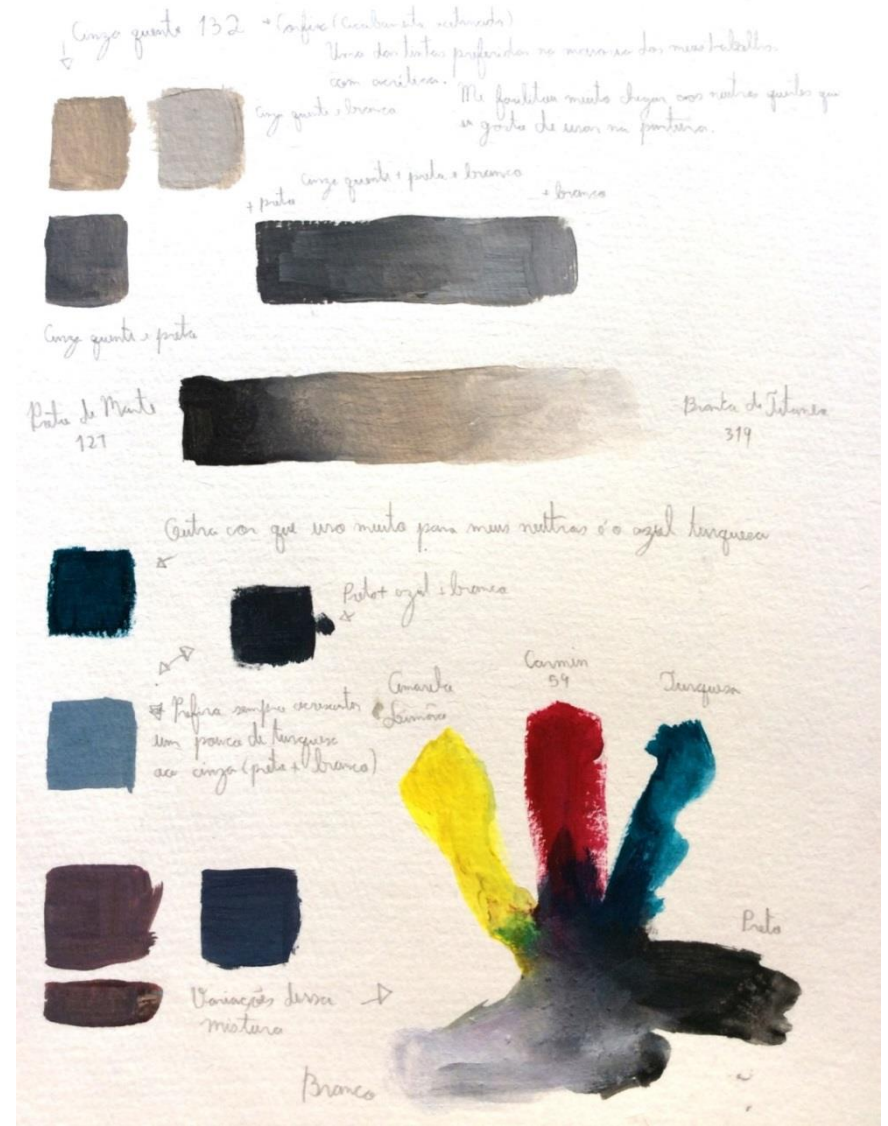 Cinza quente 132 → Corfix (acabamento acetinado)
Uma das tintas preferidas na maioria dos meus trabalhos
com acrílica.
Me facilitou muito chegar aos neutros quentes que
eu gosto de usar na pintura.
cinza quente + branco
cinza quente + preto e branco
+ preto
+ branco
Cinza quente + preto
Preto de Marte
127
Branco de Titânio
319
Outra cor que uso muito para meus neutros é o azul turquesa
Preto + azul + branco
Prefiro sempre acrescentar
um pouco de turquesa
ao cinza (preto + branco)
Amarelo
Limão
Carmin
59
Turquesa
Preto
Variações dessa
mistura
Branco